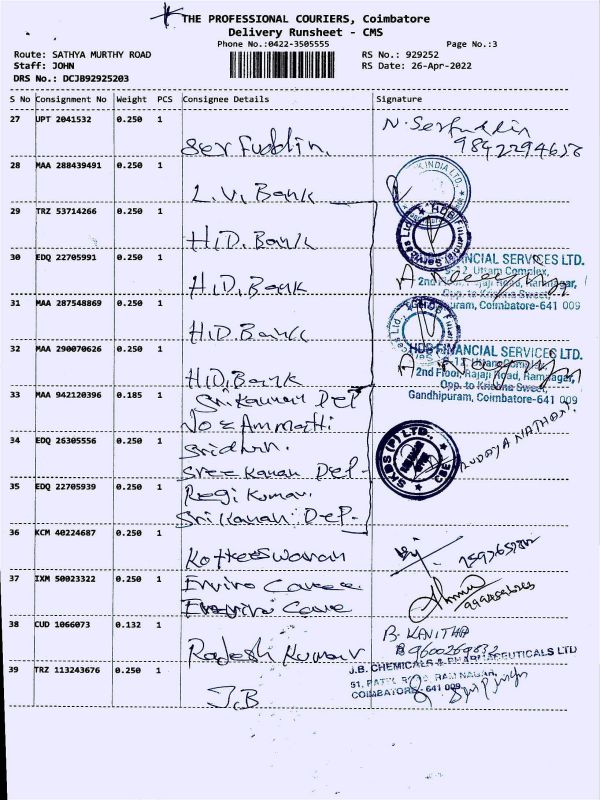 THE PROFESSIONAL COURIERS, Coimbatore
Delivery Runsheet - CMS
Phone No.:0422-3505555
Page No.:3
Route: SATHYA MURTHY ROAD
RS No.: 929252
Staff: JOHN
RS Date: 26-Apr-2022
DRS No.: DCJB92925203
S No Consignment No Weight PCS Consignee Details Signature
27 UPT 2041532 0.250 1
Serfuddin.
N. Serfuddin
28 MAA 288439491 0.250 1
L.V. Bank
INDIA LTD.
29 TRZ 53714266 0.250 1
H.D. Bank
HDB Financial Services Ltd.
30 EDQ 22705991 0.250 1
H.D. Bank
FINANCIAL SERVICES LTD.
Uttam Complex,
2nd Floor, Rajaji Road, Ramnagar,
Opp. to Krishna Sweet,
Coimbatore-641 009
31 MAA 287548869 0.250 1
H.D. Bank
32 MAA 290070626 0.250 1
H.D. Bank
HDB FINANCIAL SERVICES LTD.
2nd Floor, Rajaji Road, Ramnagar,
Opp. to Krishna Sweet,
Gandhipuram, Coimbatore-641 009
33 MAA 942120396 0.185 1
Sri Kannan Dep
No = Ammathi
34 EDQ 26305556 0.250 1
Sridhar.
Sree Kanan Dep-
(P) LTD.,
CBE
35 EDQ 22705939 0.250 1
Regi Kumar.
Sri Kanan Dep-
36 KCM 40224687 0.250 1
Kotteeswaran
37 IXM 50023322 0.250 1
Enviro Care
38 CUD 1066073 0.132 1
Rajesh Kumar
B. KAVITHA
9600269632
39 TRZ 113243676 0.250 1
J.B
J.B. CHEMICALS & PHARMACEUTICALS LTD
51, PATEL ROAD, RAM NAGAR,
COIMBATORE - 641 009